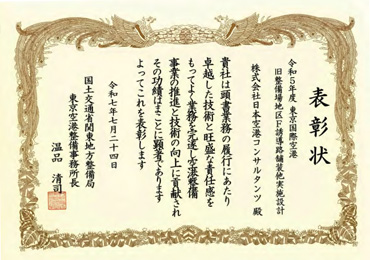 表彰状
令和5年度 東京国際空港
旧整備場地区F誘導路舗装他実施設計
株式会社日本空港コンサルタンツ 殿
貴社は頭書業務の履行にあたり
卓越した技術と旺盛な責任感を
もってよく業務を完遂し空港整備
事業の推進と技術の向上に貢献され
その功績はまことに顕著であります
よってこれを表彰します
令和七年七月二十四日
国土交通省関東地方整備局
東京空港整備事務所長
温品 清司